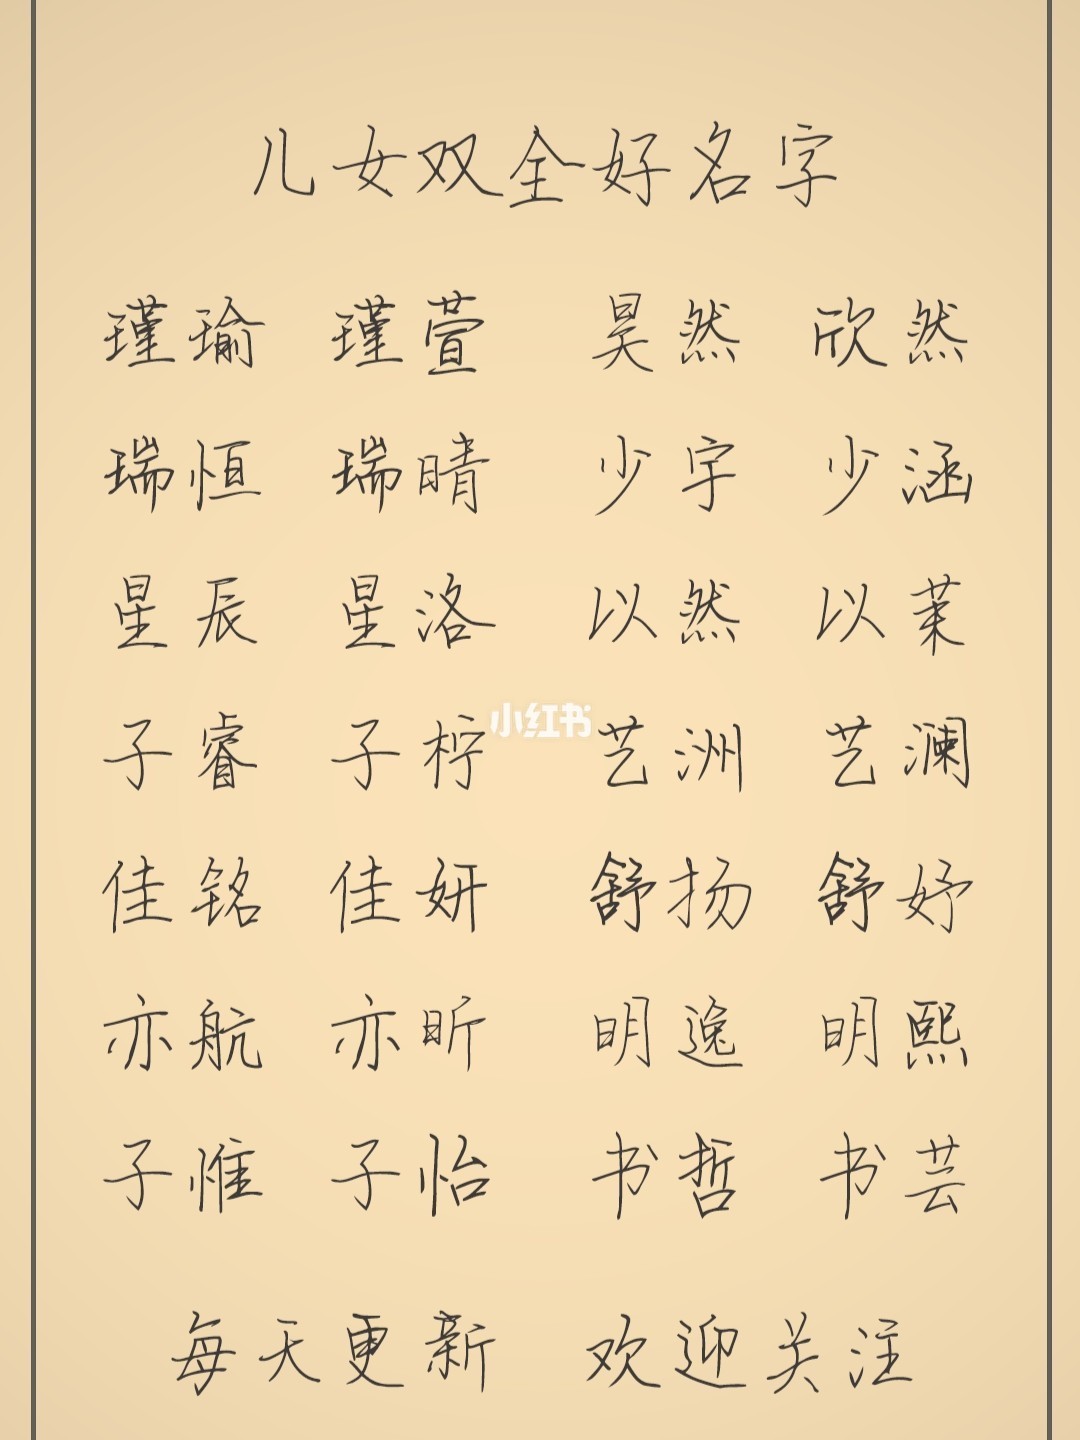 儿女双全好名字
瑾瑜 瑾萱 昊然 欣然
瑞恒 瑞晴 少宇 少涵
星辰 星洛 以然 以茉
子睿 子柠 艺洲 艺澜
小红书
佳铭 佳妍 舒扬 舒妤
亦航 亦昕 明逸 明熙
子惟 子怡 书哲 书芸
每天更新 欢迎关注